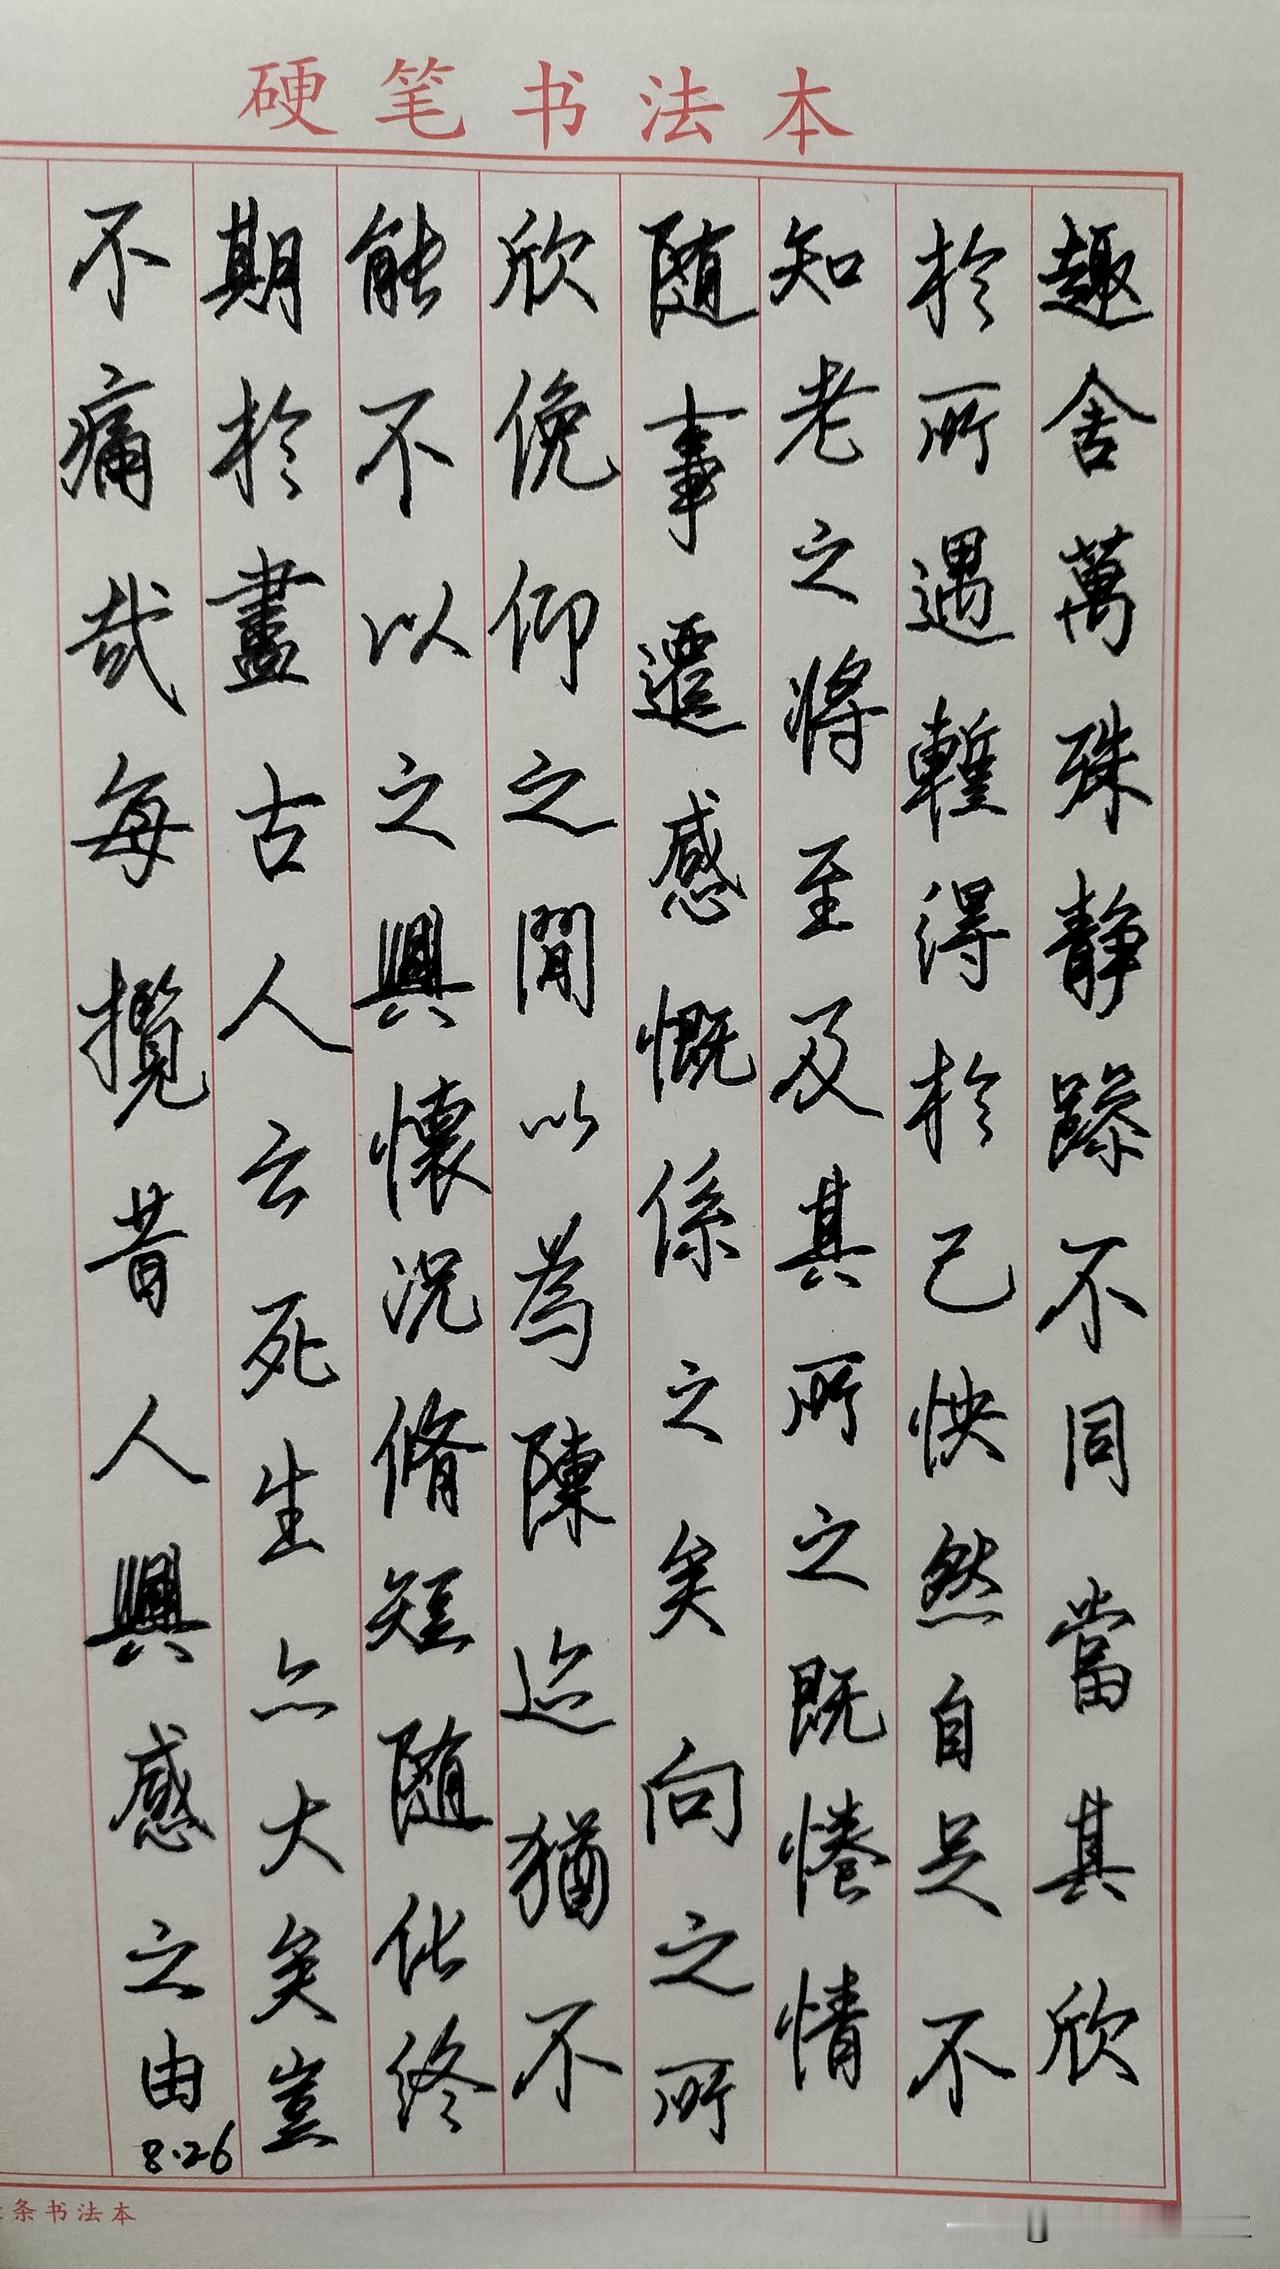 硬笔书法本
趣舍萬殊静躁不同當其欣
於所遇暫得於己怏然自足不
知老之將至及其所之既惓情
随事遷感慨係之矣向之所
欣俛仰之間以為陳迹猶不
能不以之興懷况脩短随化終
期於盡古人云死生亦大矣豈
不痛哉每攬昔人興感之由
8.26
条书法本